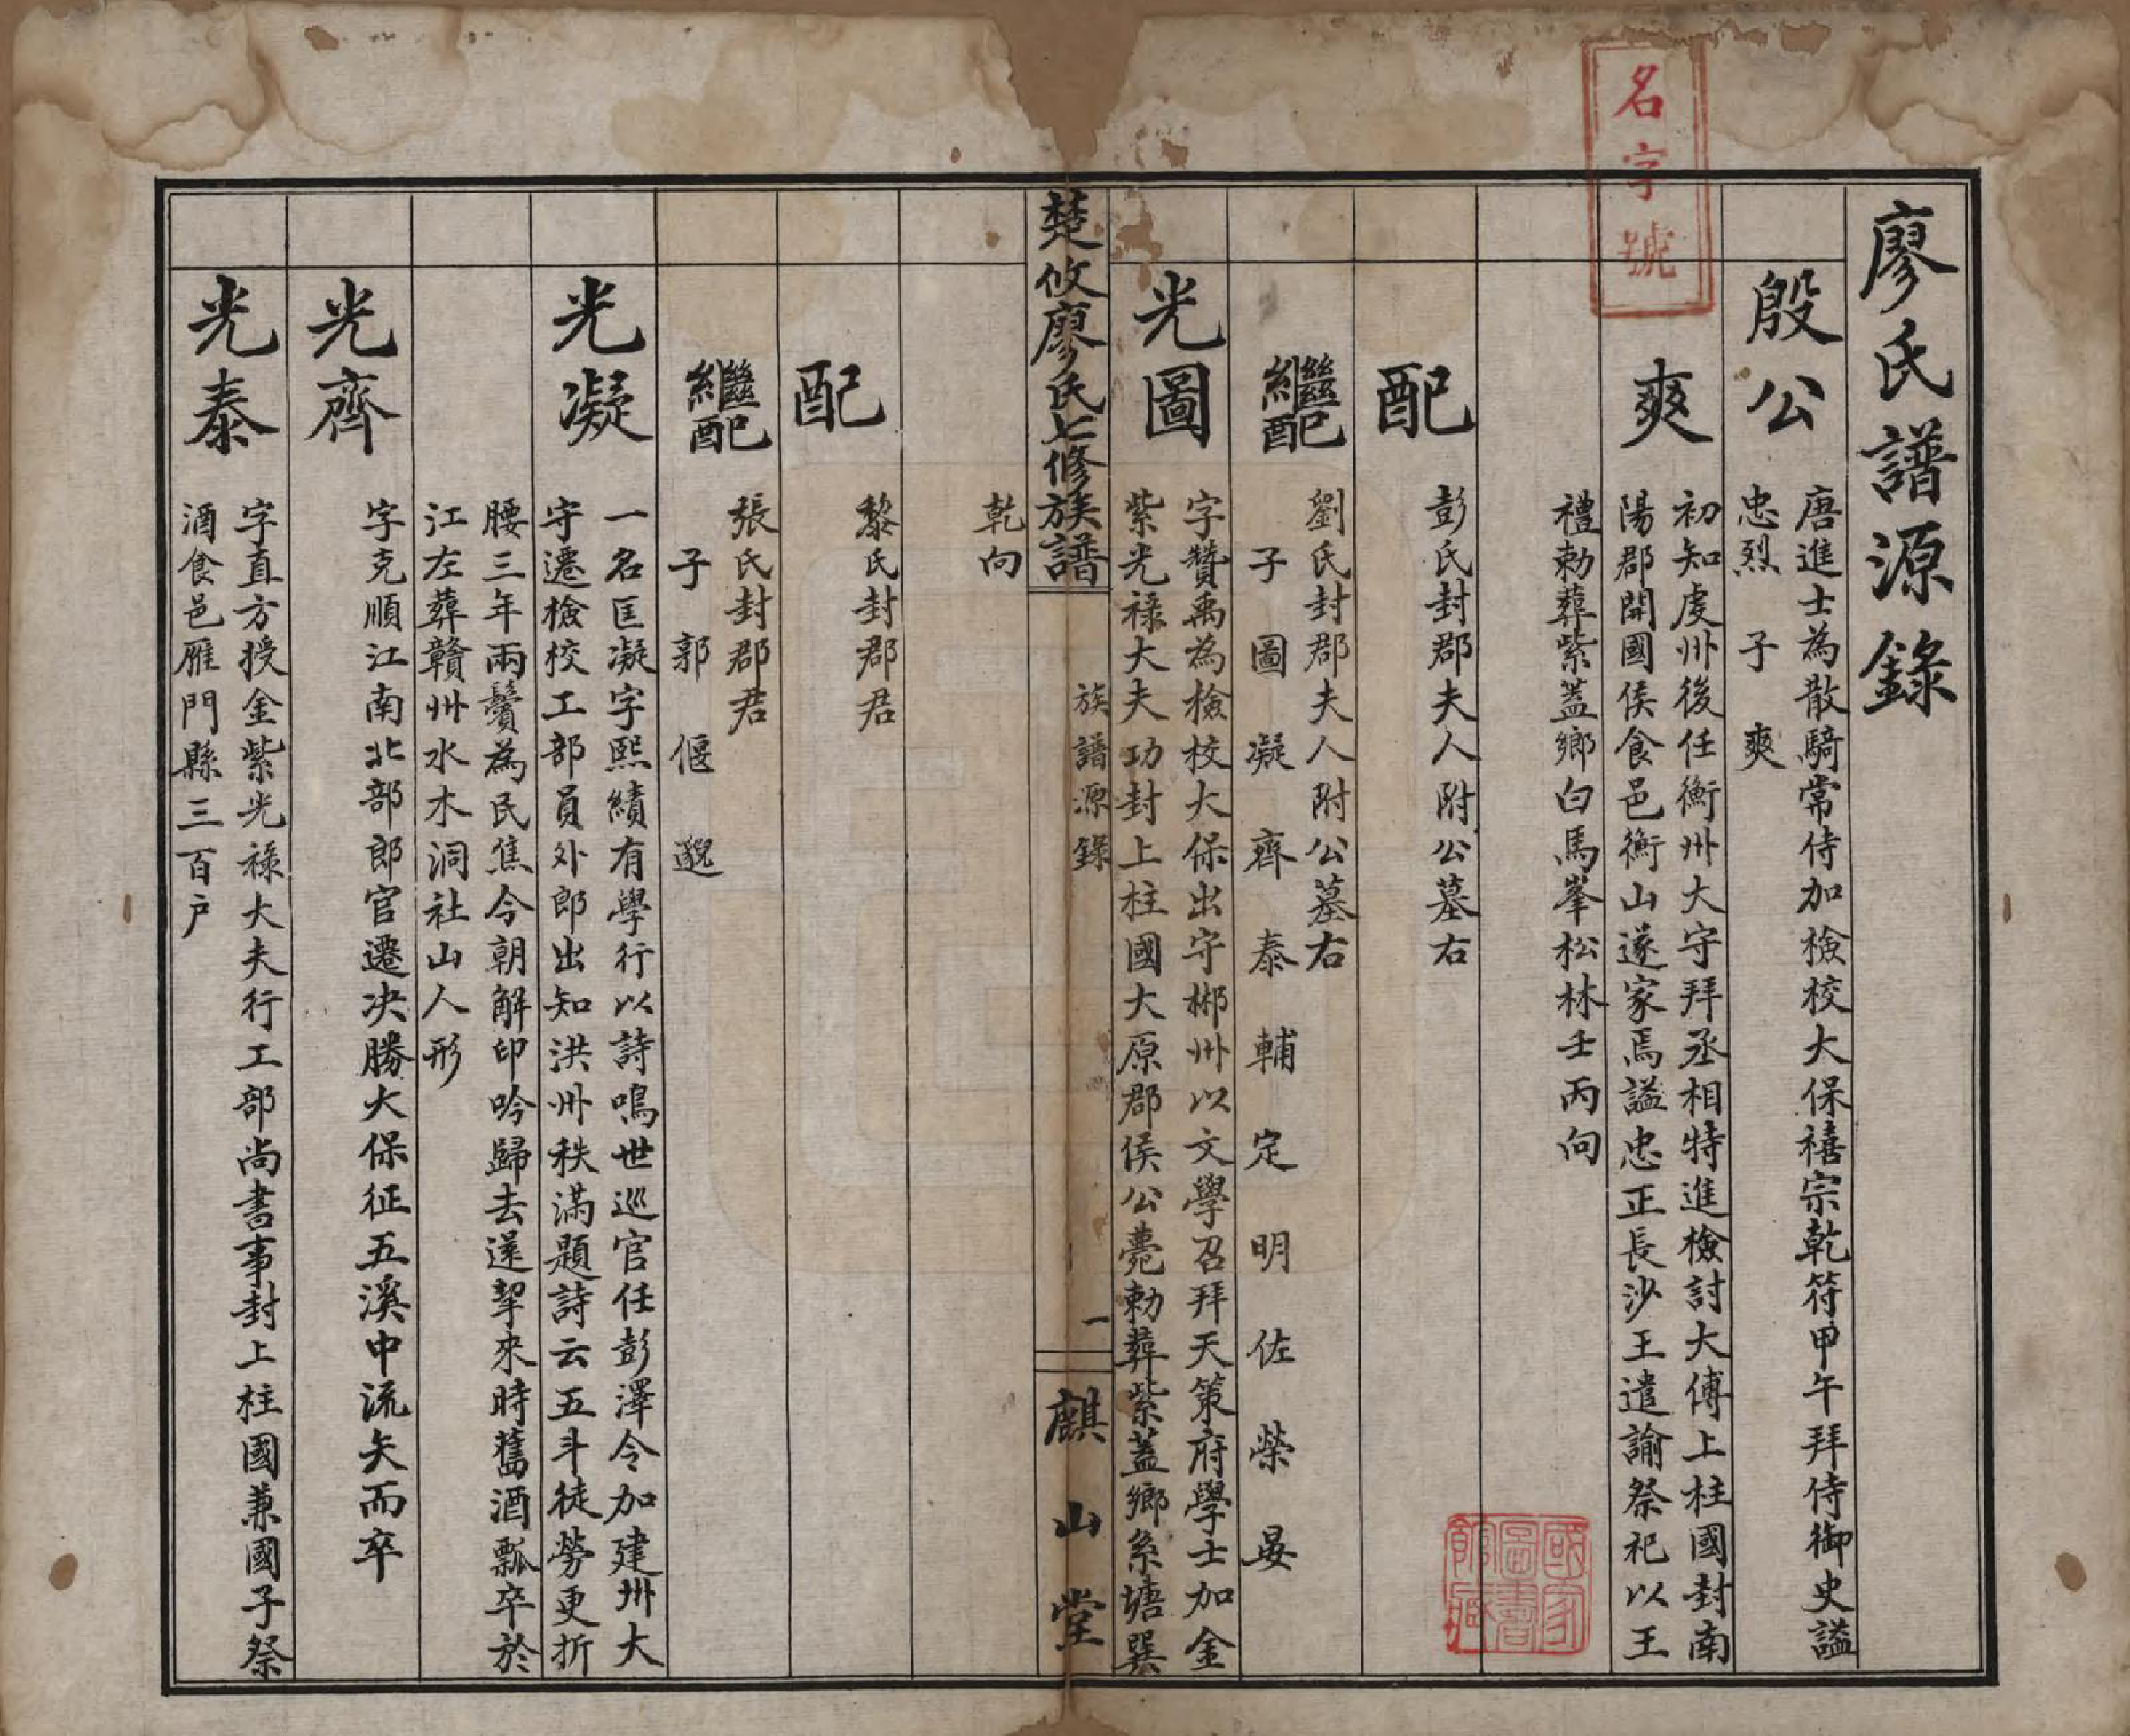 廖氏譜源錄
名字號
殷公
唐進士為散騎常侍加檢校大保禧宗乾符甲午拜侍御史謚
忠烈 子 爽
爽
初知虔州後任衡州大守拜丞相特進檢討大傅上柱國封南
陽郡開國侯食邑衡山遂家焉謚忠正長沙王遣諭祭祀以王
禮勅葬紫蓋鄉白馬峯松林壬丙向
配
彭氏封郡夫人附公墓右
繼配
劉氏封郡夫人附公墓右
子 圖 凝 齊 泰 輔 定 明 佐 榮 晏
光圖
字贊禹為檢校大保出守郴州以文學召拜天策府學士加金
紫光祿大夫功封上柱國大原郡侯公薨勅葬紫蓋鄉系塘巽
楚攸廖氏七修族譜
族譜源錄
一
麒山堂
乾向
配
黎氏封郡君
繼配
張氏封郡君
子 郭 偃 邈
光凝
一名匡凝字熙績有學行以詩鳴世巡官任彭澤令加建州大
守遷檢校工部員外郎出知洪州秩滿題詩云五斗徒勞更折
腰三年兩鬢為民焦今朝解印吟歸去遂挈來時舊酒瓢卒於
江左葬贛州水木洞社山人形
光齊
字克順江南北部郎官遷決勝大保征五溪中流矢而卒
光泰
字直方授金紫光祿大夫行工部尚書事封上柱國兼國子祭
酒食邑雁門縣三百户
國家圖書館藏